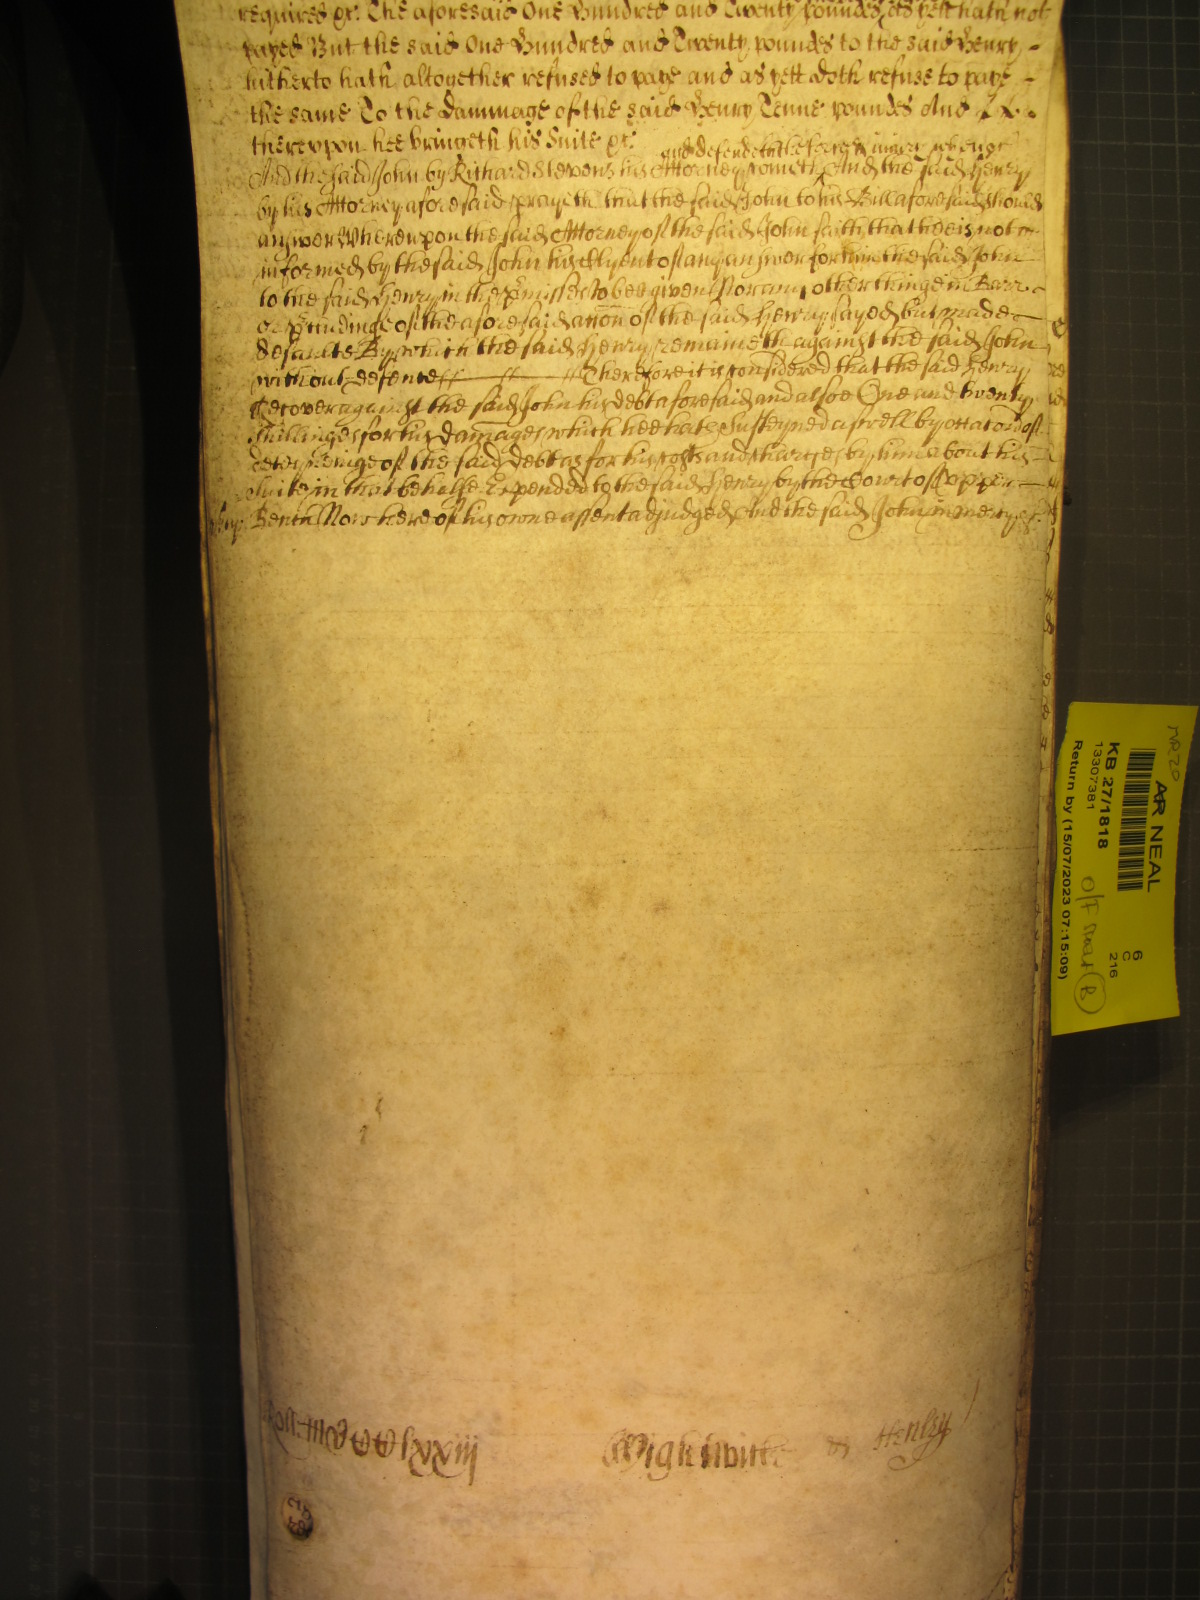 requires &c. The aforesaid One Hundred and Twenty poundes, its yett hath not
payed But the said One Hundred and Twenty poundes to the said Henry
hitherto hath altogether refused to paye and as yett doth refuse to paye
the same To the dammage of the said Henry Tenne poundes And
thereupon hee bringeth his Suite &c.
and defendeth the force & iniury whence
And the said John by Richard Stevens his Attorney cometh And the said Henry
by his Attorney aforesaid prayeth that the said John to his Bill aforesaid should
answer Whereupon the said Attorney of the said John saith that hee is not
informed by the said John his Clyent of any answer for him the said John
to the said Henry in the pmisses to bee given Nor any other thinge in Barr
or pcludinge of the aforesaid accon of the said Henry sayed but made
defaulte By which the said Henry remaineth against the said John
without defence Therefore it is considered that the said Henry
recover against the said John his debt aforesaid and alsoe One and twenty
shillinges for his damages which hee hath susteyned aswell by occacon of
deteyninge of the said debt as for his costs and charges by him about his
suite in that behalfe expended to the said Henry by the Court of Upper
Bench Now here of his owne assent adjudged And the said John in mercy &c.
lxxiij
Wightwicke Henley
AR NEAL
KB 27/1818
13307381
Return by (15/07/2023 07:15:09)
6
C
216